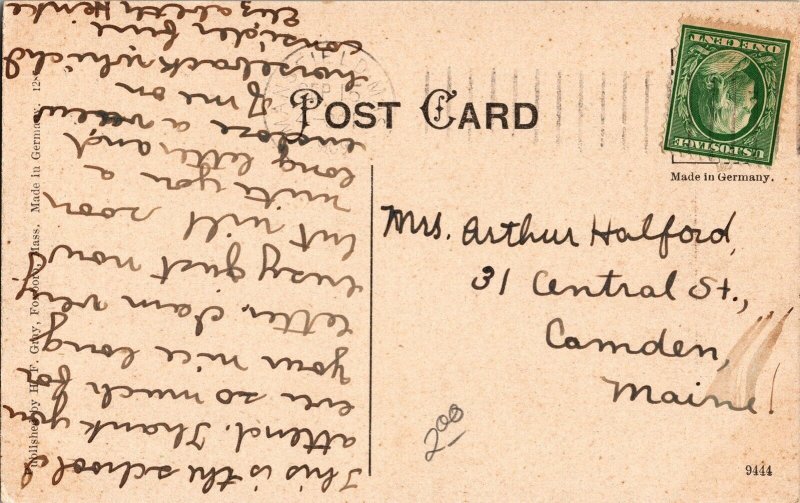 POST CARD
U.S. POSTAGE
ONE CENT
Made in Germany.
Mrs. Arthur Halford,
31 Central St.,
Camden,
Maine.
This is the school I
attend. Thank you
ever so much for
your nice long
letter. I am very
busy just now,
but will soon
write you a
long letter and
enclose a view
of me on
horseback which I
consider fine
Elizabeth Heinke
Published by H. F. Gray, Foxboro, Mass. Made in Germany.
200
9444